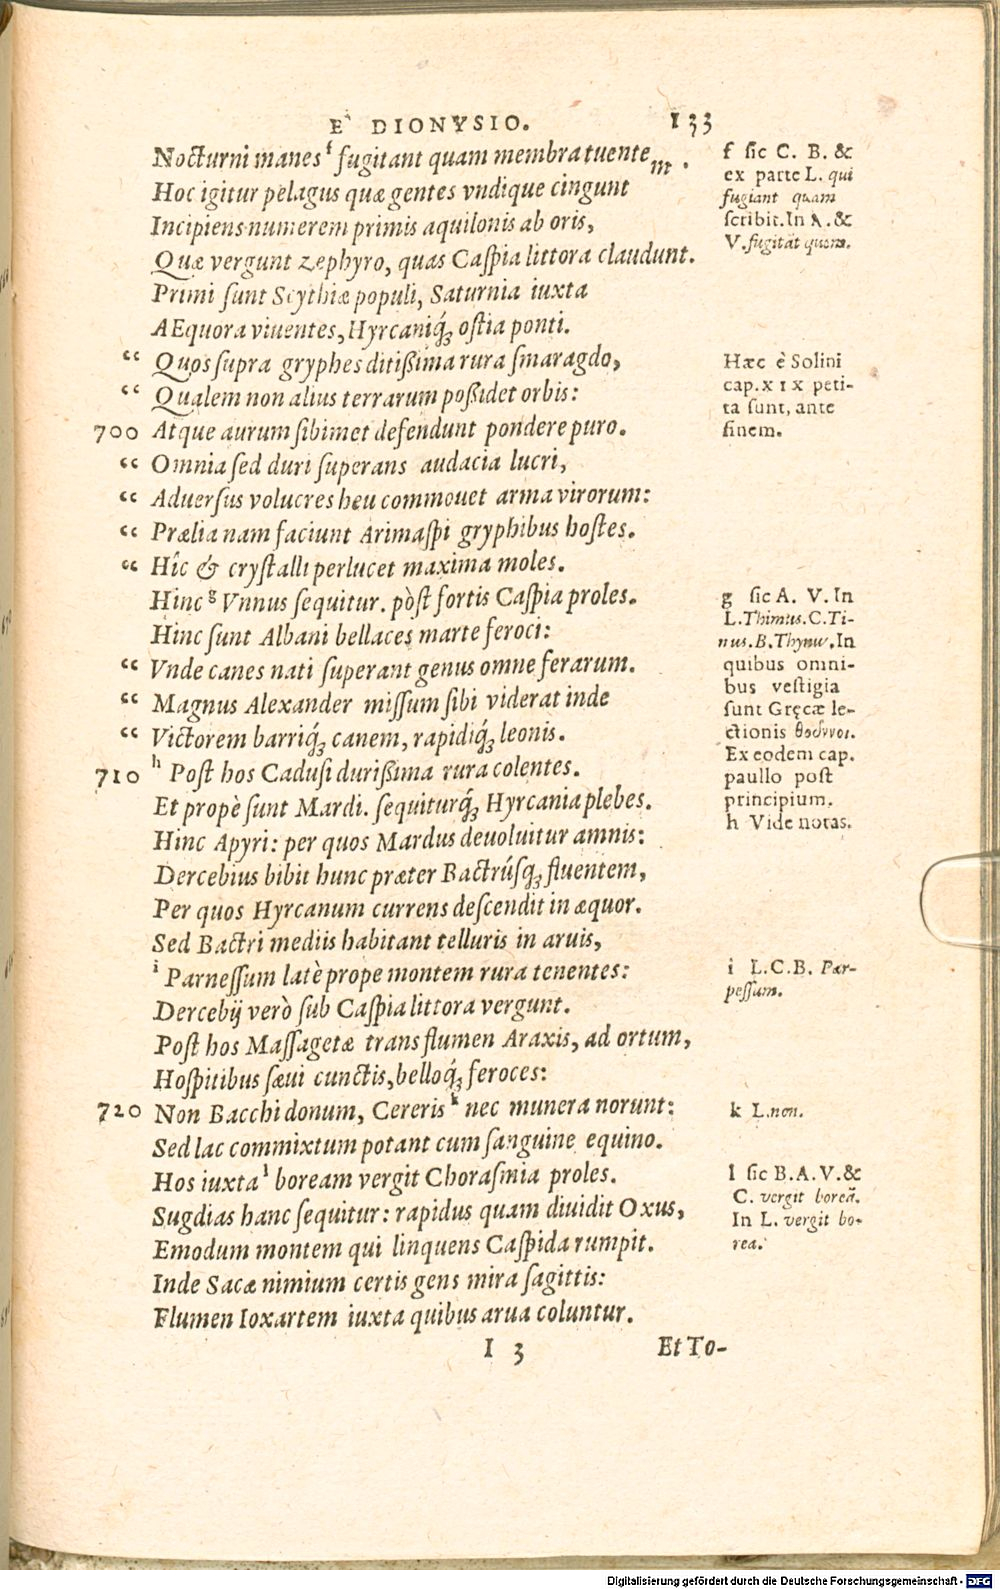 E` DIONYSIO. 133
Nocturni manes f fugitant quam membra tuentem.
Hoc igitur pelagus quæ gentes vndique cingunt
Incipiens numerem primis aquilonis ab oris,
Quæ vergunt zephyro, quas Caſpia littora claudunt.
Primi ſunt Scythiæ populi, Saturnia iuxta
AEquora viuentes, Hyrcaniq́; oſtia ponti.
“ Quos ſupra gryphes ditißima rura ſmaragdo,
“ Qualem non alius terrarum poßidet orbis:
700 Atque aurum ſibimet defendunt pondere puro.
“ Omnia ſed duri ſuperans audacia lucri,
“ Aduerſus volucres heu commouet arma virorum:
“ Prælia nam faciunt Arimaſpi gryphibus hoſtes.
“ Hîc & cryſtalli perlucet maxima moles.
Hinc g Vnnus ſequitur. pòſt fortis Caſpia proles.
Hinc ſunt Albani bellaces marte feroci:
“ Vnde canes nati ſuperant genus omne ferarum.
“ Magnus Alexander miſſum ſibi viderat inde
“ Victorem barriq́; canem, rapidiq́; leonis.
710 h Poſt hos Caduſi durißima rura colentes.
Et propè ſunt Mardi. ſequiturq́; Hyrcania plebes.
Hinc Apyri: per quos Mardus deuoluitur amnis:
Dercebius bibit hunc præter Bactrúſq; fluentem,
Per quos Hyrcanum currens deſcendit in æquor.
Sed Bactri mediis habitant telluris in aruis,
i Parneſſum latè prope montem rura tenentes:
Dercebij verò ſub Caſpia littora vergunt.
Poſt hos Maſſagetæ trans flumen Araxis, ad ortum,
Hoſpitibus ſæui cunctis, belloq́; feroces:
720 Non Bacchi donum, Cereris k nec munera norunt:
Sed lac commixtum potant cum ſanguine equino.
Hos iuxta l boream vergit Choraſmia proles.
Sugdias hanc ſequitur: rapidus quam diuidit Oxus,
Emodum montem qui linquens Caſpida rumpit.
Inde Sacæ nimium certis gens mira ſagittis:
Flumen Ioxartem iuxta quibus arua coluntur.
I 3 Et To-
f ſic C. B. &
ex parte L. qui
fugiant quam
ſcribit. In A. &
V. fugitāt quem.
Hæc è Solini
cap. XIX peti-
ta ſunt, ante
finem.
g ſic A. V. In
L. Thimus. C. Ti-
nus. B. Thynus. In
quibus omni-
bus veſtigia
ſunt Gręcæ le-
ctionis θοῦννοι.
Ex eodem cap.
paullo poſt
principium.
h Vide notas.
i L. C. B. Par-
peſſum.
k L. non.
l ſic B. A. V. &
C. vergit boreā.
In L. vergit bo-
rea.
Digitalisierung gefördert durch die Deutsche Forschungsgemeinschaft - DFG